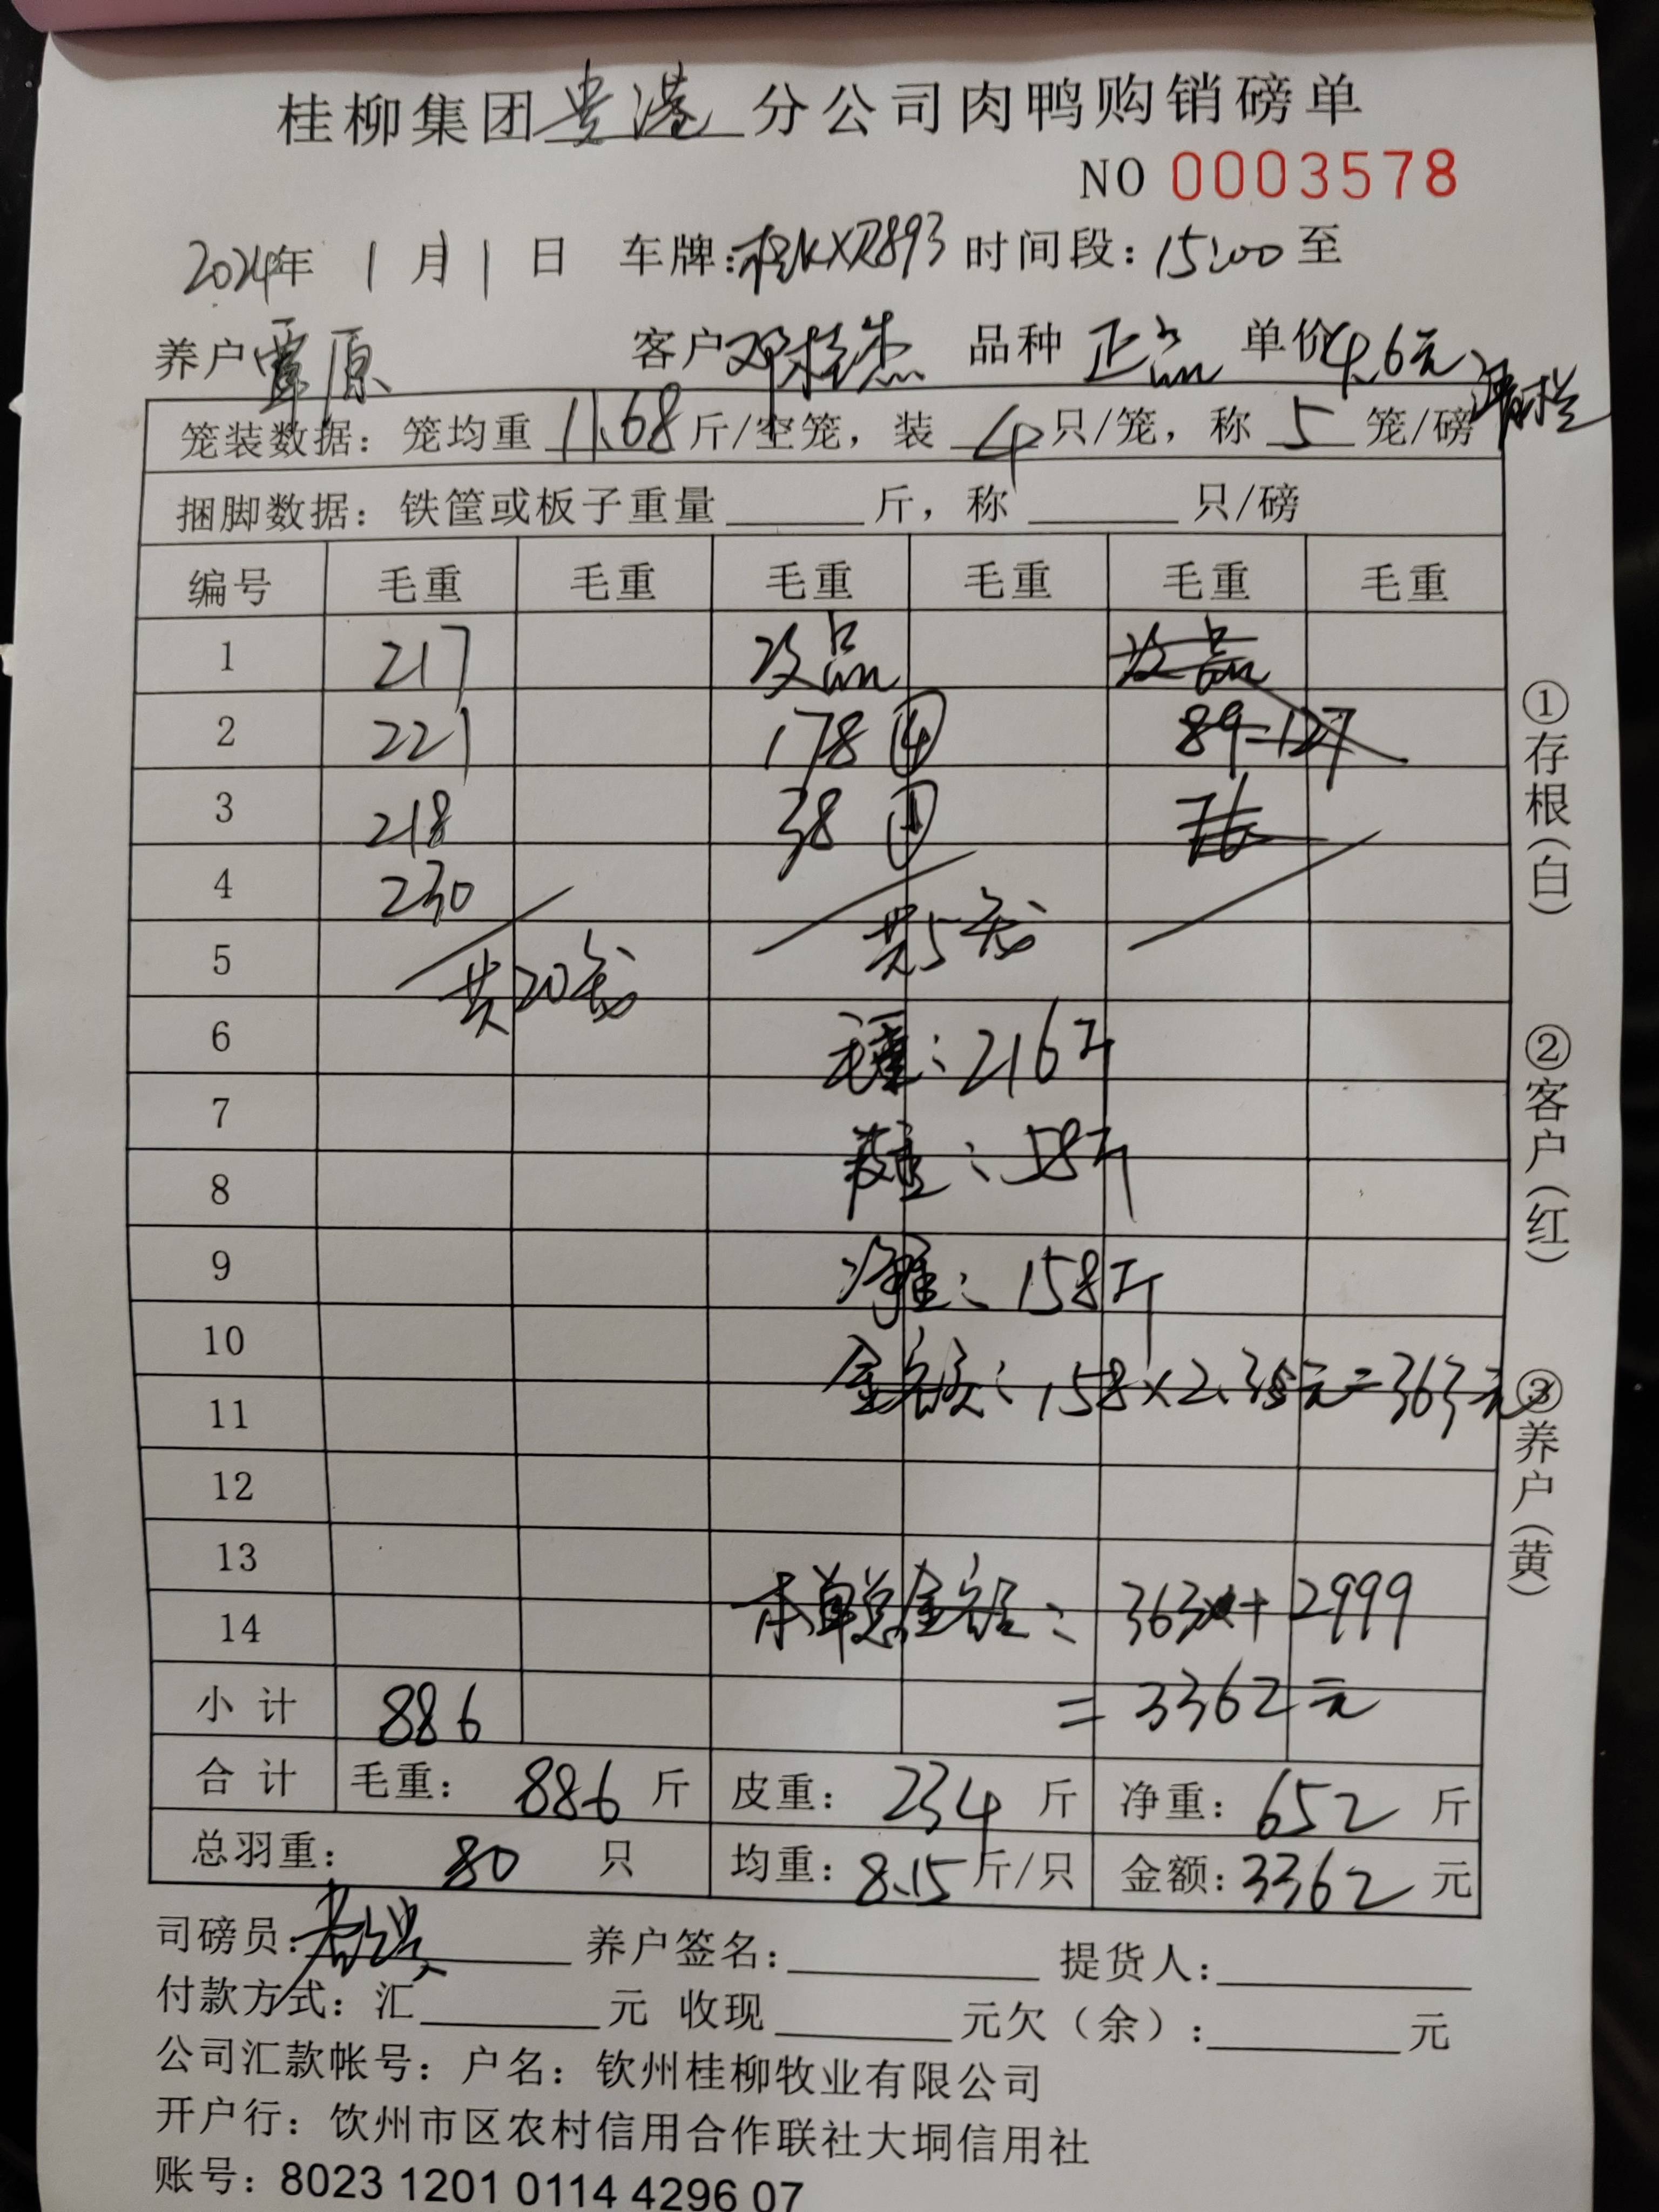 桂柳集团贵港分公司肉鸭购销磅单
NO 0003578
2024年 1月1日 车牌:桂KXR893 时间段:15:00至
养户覃原 客户邓桂杰 品种 正品 单价4.6元
笼装数据:笼均重 11.68 斤/空笼,装 4 只/笼,称 5 笼/磅
捆脚数据:铁筐或板子重量 斤,称 只/磅
编号 毛重 毛重 毛重 毛重 毛重 毛重
1 217 次品 次品
2 221 178 ④ 89-127
3 218 38 ① 76
4 230
共5笼
5 共20笼
6 毛重:216斤
7
皮重:58斤
8
9 净重:158斤
10
金额:158×2.3元=363元
11
12
13
本单总金额:363+2999
14
小计 886 =3362元
合计 毛重:886斤 皮重:234斤 净重:652斤
总羽重:80只 均重:8.15斤/只 金额:3362元
司磅员: 养户签名: 提货人:
付款方式:汇 元 收现 元欠(余): 元
公司汇款帐号:户名:钦州桂柳牧业有限公司
开户行:饮州市区农村信用合作联社大垌信用社
账号:8023 1201 0114 4296 07
①存根(白)
②客户(红)
③养户(黄)